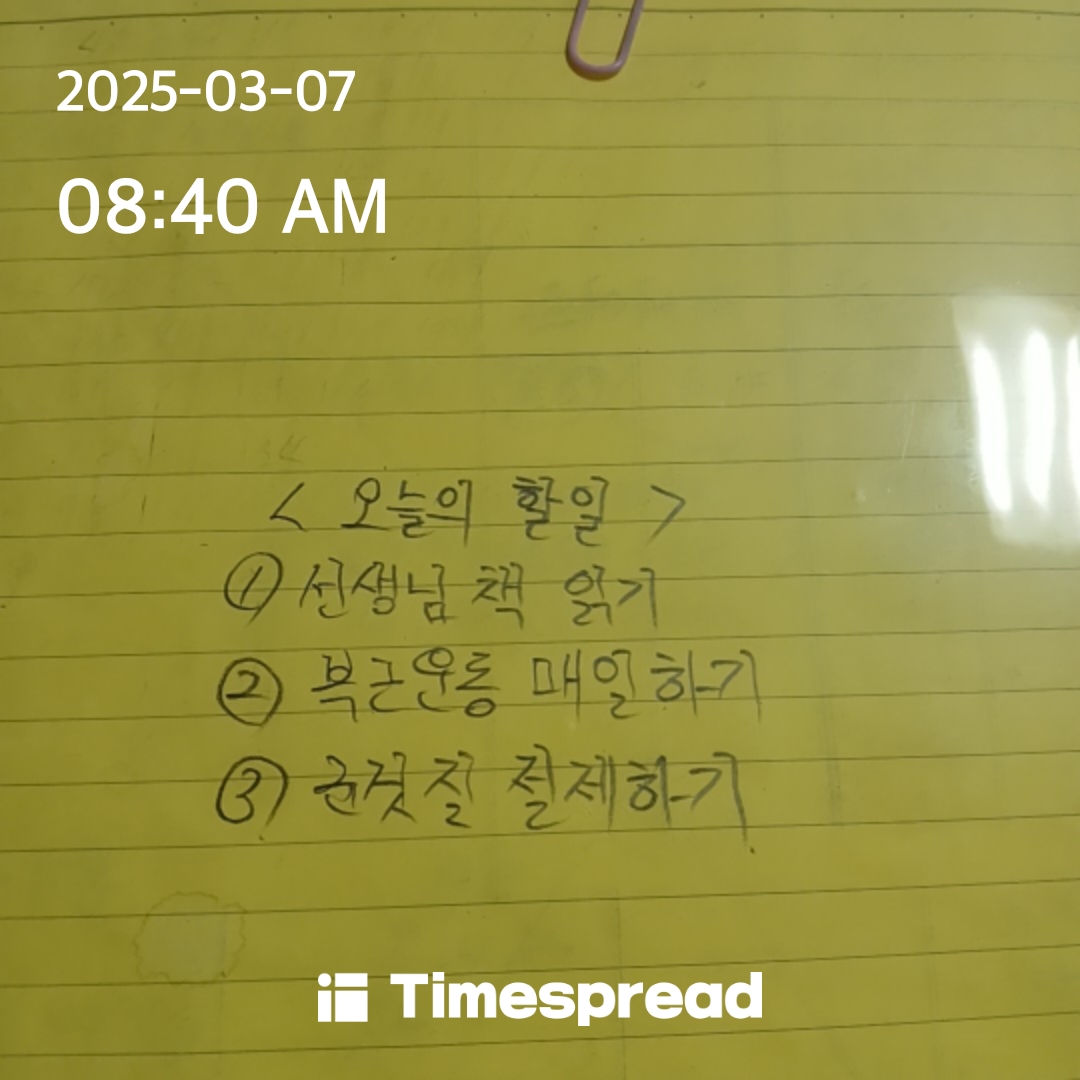 2025-03-07
08:40 AM
< 오늘의 할일 >
① 선생님 책 읽기
② 복근운동 매일하기
③ 군것질 절제하기
Timespread